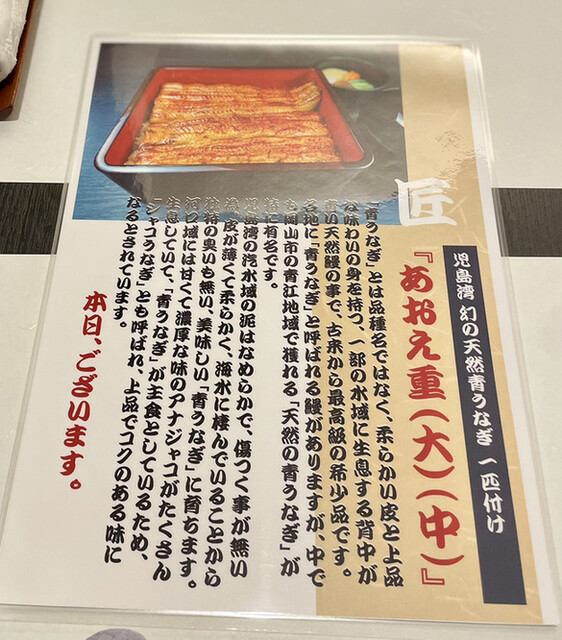 児島湾 幻の天然青うなぎ 一匹付け
匠
『あおえ重(大)(中)』
「青うなぎ」とは品種名ではなく、柔らかい皮と上品
な味わいの身を持つ、一部の水域に生息する背中が
青い天然鰻の事で、古来から最高級の希少品です。
各地に「青うなぎ」と呼ばれる鰻がありますが、中で
も岡山市の青江地域で獲れる「天然の青うなぎ」が
特に有名です。
児島湾の汽水域の泥はなめらかで、傷つく事が無い
為、皮が薄くて柔らかく、海水に棲んでいることから
独特の臭いも無い、美味しい「青うなぎ」に育ちます。
河口域には甘くて濃厚な味のアナジャコがたくさん
生息していて、「青うなぎ」が主食としているため、
「ジャコうなぎ」とも呼ばれ、上品でコクのある味に
なるとされています。
本日、ございます。